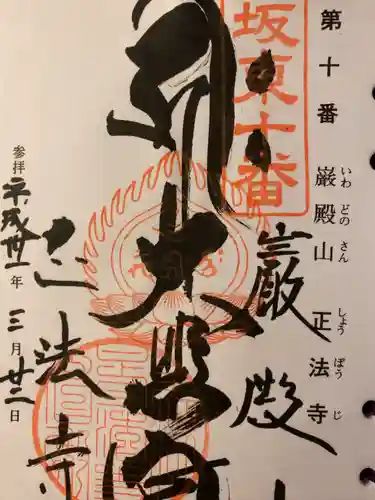 第十番 巌殿山 正法寺
いわ どの さん しょう ぼう じ
坂東十番
巌殿
大悲
正法寺
参拝 平成卅一年 三月廿二日